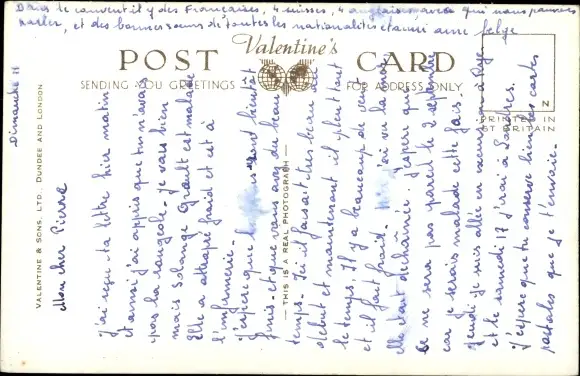 Dans le couvent il y des Françaises, 4 suisses, 4 anglaises avec qui nous pouvons
parler, et des bonnes sœurs de toutes les nationalités et aussi une belge
Valentine's
POST CARD
SENDING YOU GREETINGS
FOR ADDRESS ONLY
PRINTED IN
GT BRITAIN
N
VALENTINE & SONS, LTD., DUNDEE AND LONDON
THIS IS A REAL PHOTOGRAPH
Dimanche 11
Mon cher Pierre
J'ai reçu ta lettre hier matin
et ainsi j'ai appris que tu n'avais
pas la rougeole. Je vais bien
mais Solange Grault est malade
Elle a attrapé froid et est à
l'infirmerie.
J'espère que sont bientôt
finis et que vous avez du beau
temps. Ici il faisait très beau au
début et maintenant il pleut tout
le temps. Il y a beaucoup de vent
et il fait froid. j'ai vu la mer
elle était déchaînée. J'espère que
ce ne sera pas pareil le 2 septembre
car je serais malade cette fois.
Jeudi je suis allée en excursion à Rye
et le samedi 17 j'irai à Londres.
J'espère que tu conserve bien les cartes
postales que je t'envoie.